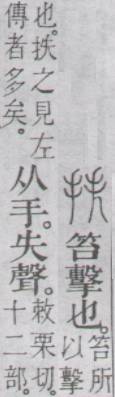 抶笞擊也。笞所以擊
也。抶之見左傳者多矣。从手。失聲。敕栗切。十二部。